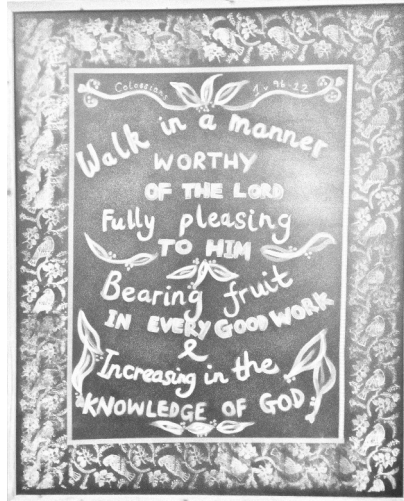 Colossians 1 v 9b-12
Walk in a manner
WORTHY
OF THE LORD
Fully pleasing
TO HIM
Bearing fruit
IN EVERY GOOD WORK
&
Increasing in the
KNOWLEDGE OF GOD